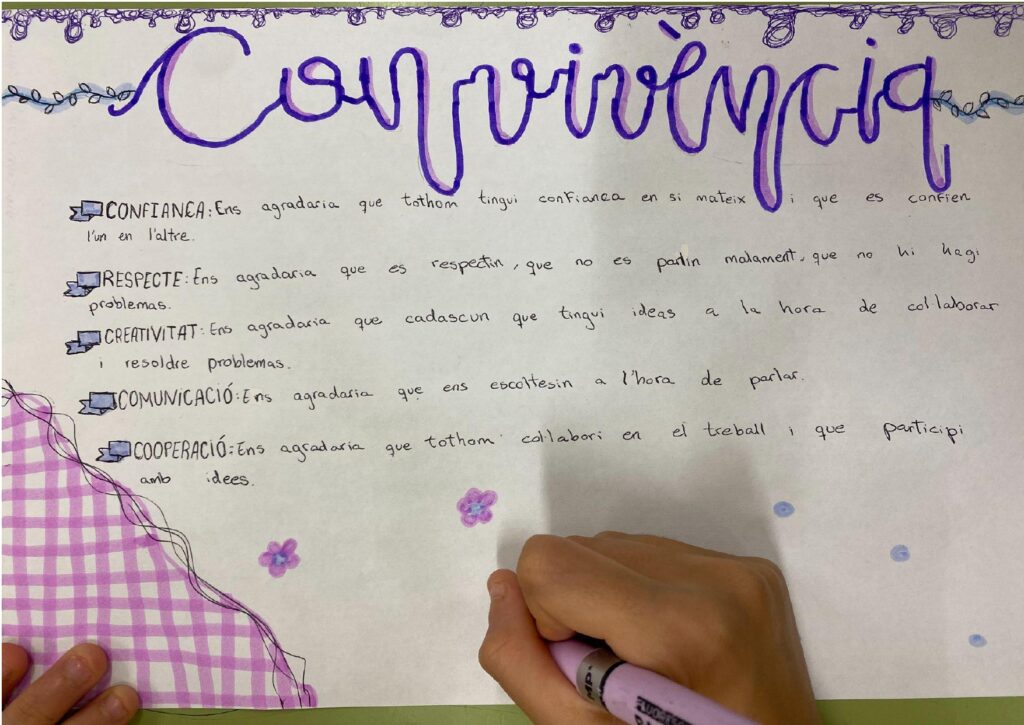 Convivència
CONFIANÇA: Ens agradaria que tothom tingui confiança en si mateix i que es confien
l'un en l'altre.
RESPECTE: Ens agradaria que es respectin, que no es parlin malament, que no hi hagi
problemas.
CREATIVITAT: Ens agradaria que cadascun que tingui ideas a la hora de col·laborar
i resoldre problemas.
COMUNICACIÓ: Ens agradaria que ens escoltesin a l'hora de parlar.
COOPERACIÓ: Ens agradaria que tothom col·labori en el treball i que participi
amb idees.